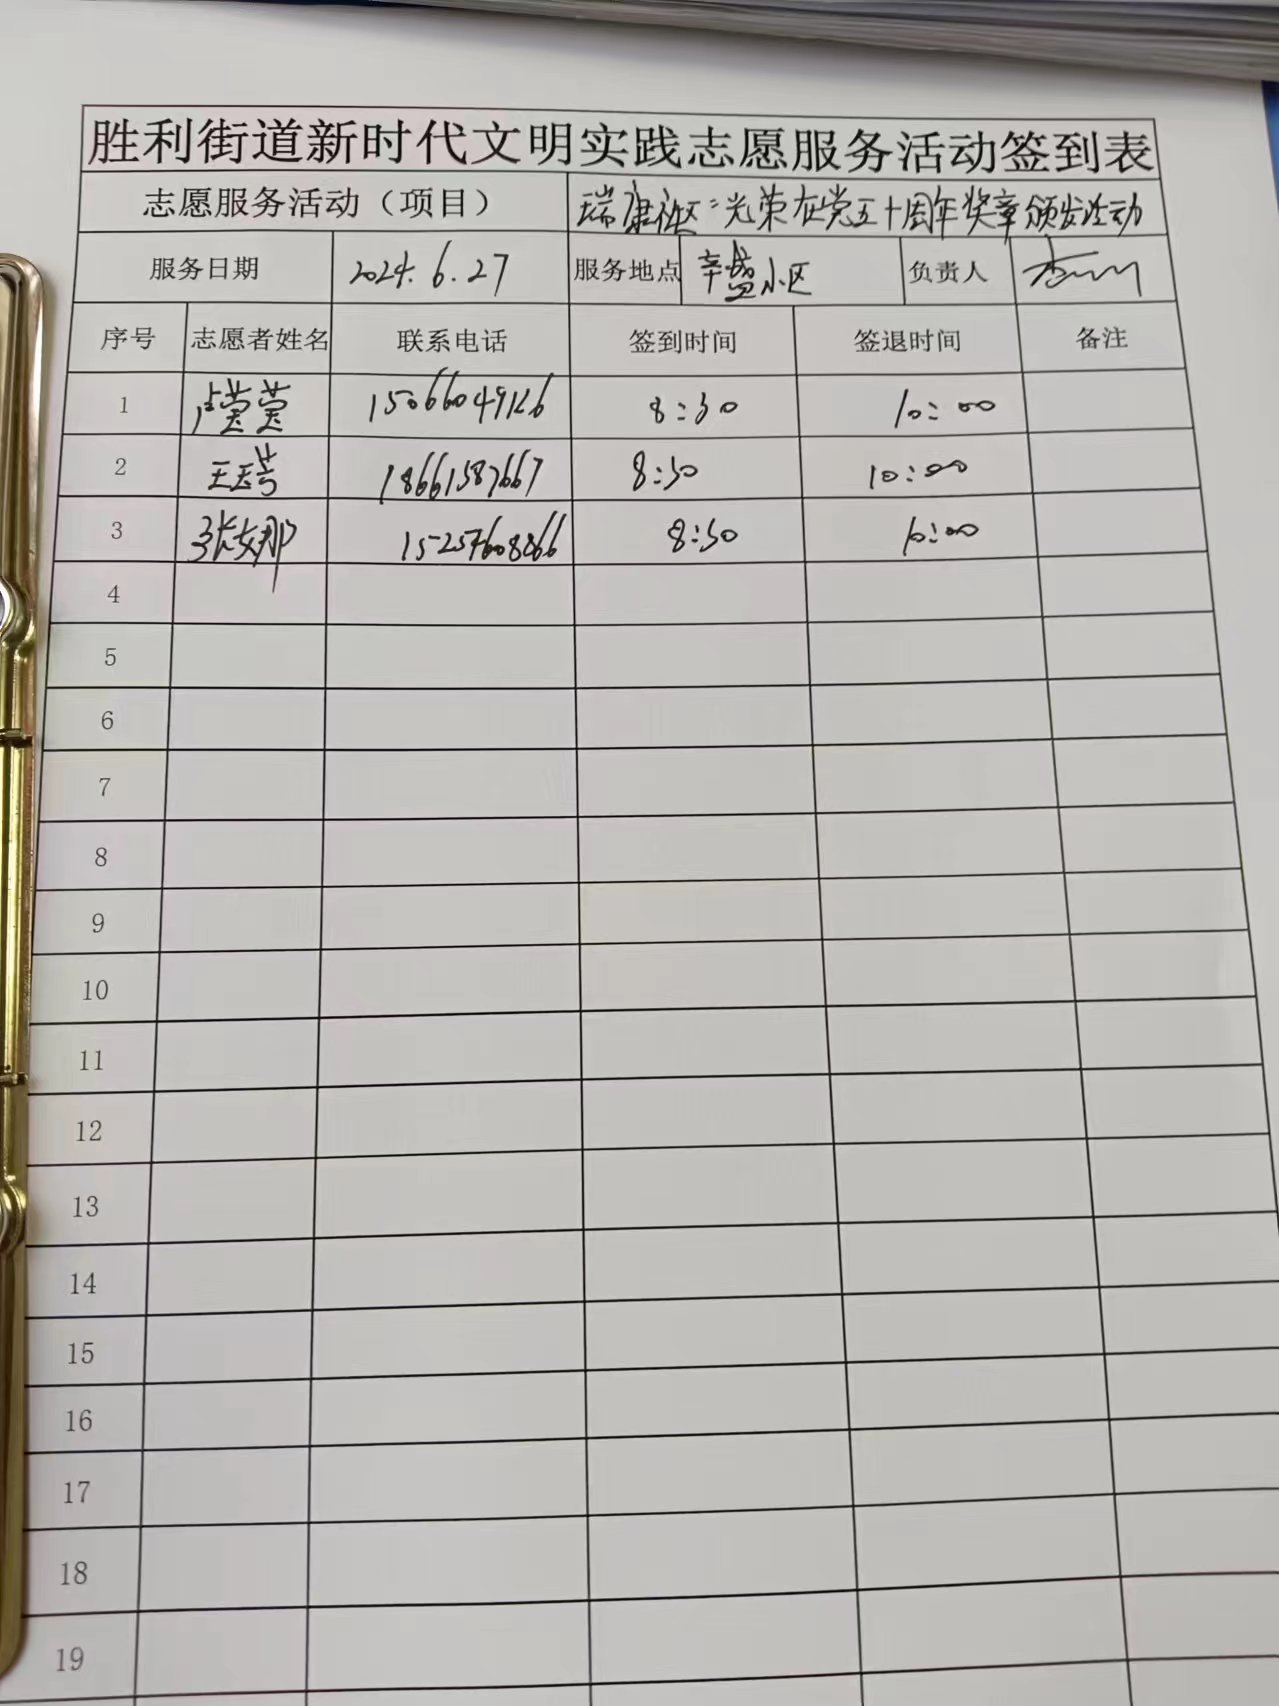 胜利街道新时代文明实践志愿服务活动签到表
志愿服务活动（项目） 瑞康社区"光荣在党五十周年奖章颁发活动
服务日期 2024.6.27 服务地点 辛盛小区 负责人
序号 志愿者姓名 联系电话 签到时间 签退时间 备注
1 卢莹莹 8:30 10:00
2 18661587667 8:30 10:00
3 张女那 15257608866 8:30 10:00
4
5
6
7
8
9
10
11
12
13
14
15
16
17
18
19